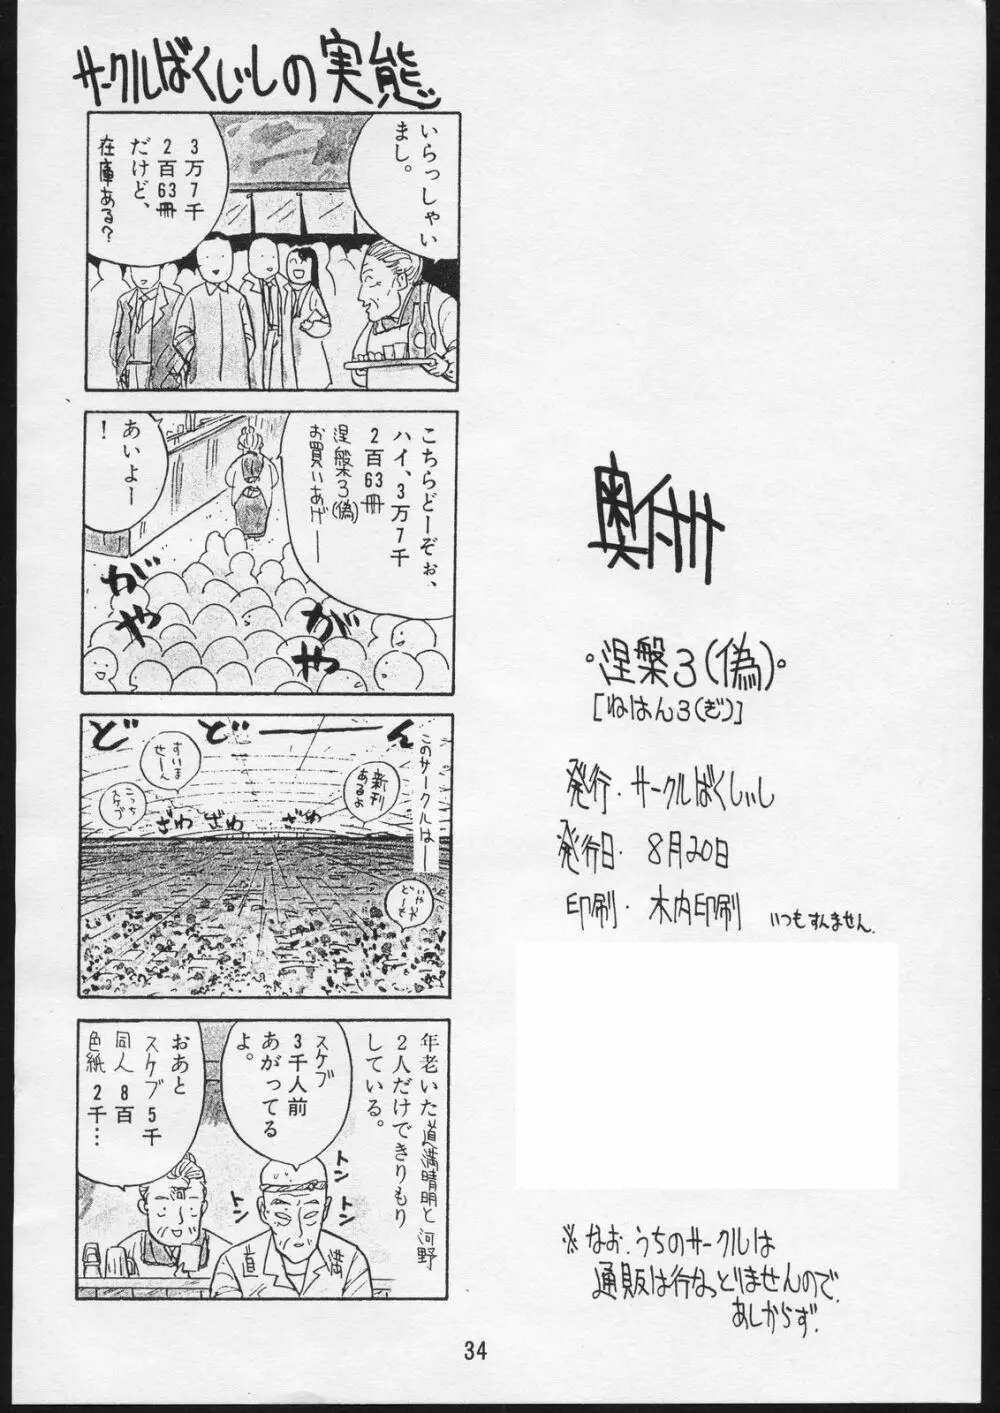 サークルばくしぃしの実態
いらっしゃい
まし。
3万7千
2百63冊
だけど、
在庫ある?
こちらどーぞぉ、
ハイ、3万7千
2百63冊
涅槃3(偽)
お買いあげ――
あいよー
!
がや
がや
このサークルは――
どど――ん
新刊
あるよ
すいま
せーん
こっち
スケブ
ざわ ざわ ざわ
年老いた道満晴明と河野
2人だけできりもり
している。
スケブ
3千人前
あがってる
よ。
おあと
スケブ5千
同人8百
色紙2千…
トン
トン
トン
トン
河
道満
奥付
・涅槃3(偽)・
[ねはん3(ぎ)]
発行・サークルばくしぃし
発行日・8月20日
印刷・木内印刷 いつもすんません.
※なお、うちのサークルは
通販は行なっとりませんので.
あしからず.
34